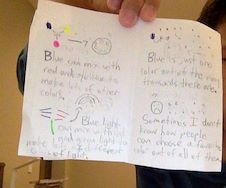 Blue can mix with
red and yellow to
make lots of other
colors.
Blue light
can mix with red
and green light to
make different
of light.
Blue is just one
color out of the many
thousands there are.
Sometimes I don't
know how people
can choose a favorite
color out of all of them